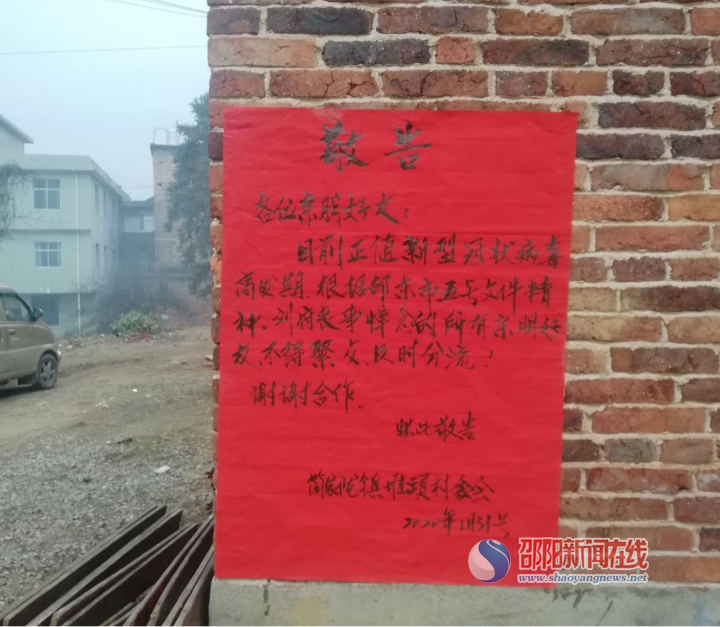 敬告
各位亲朋好友：
目前正值新型冠状病毒
高发期。根据邵东市五号文件精
神，刘府丧事悼念的所有亲朋好
友，不得聚众，及时分流！
谢谢合作。
特此敬告
简家陇镇堆头村委会
2020年1月31号
邵阳新闻在线
www.shaoyangnews.net